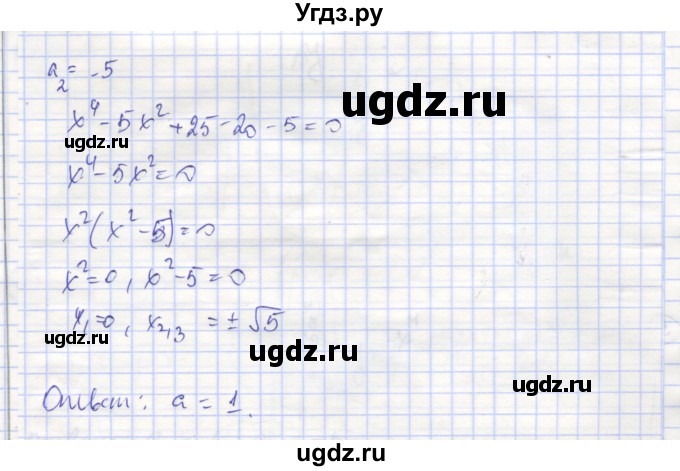 Угдз.ру
a₂ = -5
x⁴ - 5x² + 25 - 20 - 5 = 0
ugdz.ru
x⁴ - 5x² = 0
x²(x² - 5) = 0
ugdz.ru
x² = 0, x² - 5 = 0
x₁ = 0, x₂,₃ = ± √5
ugdz.ru
ugdz.ru
ugdz.ru
Ответ: a = 1.
ugdz.ru
ugdz.ru